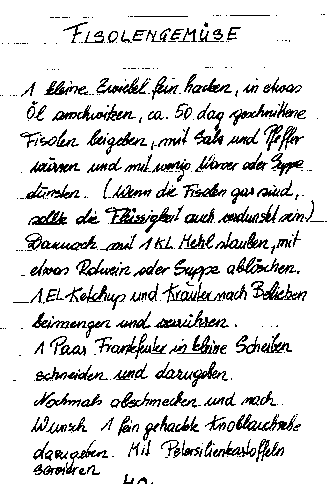 FISOLENGEMÜSE
1 kleine Zwiebel fein hacken, in etwas
Öl anschwitzen, ca. 50 dag geschnittene
Fisolen beigeben, mit Salz und Pfeffer
würzen und mit wenig Wasser oder Suppe
dünsten. (Wenn die Fisolen gar sind,
sollte die Flüssigkeit auch verdunstet sein.)
Danach mit 1 KL Mehl stauben, mit
etwas Rotwein oder Suppe ablöschen.
1 EL Ketchup und Kräuter nach Belieben
beimengen und verrühren.
1 Paar Frankfurter in kleine Scheiben
schneiden und dazugeben.
Nochmals abschmecken und nach
Wunsch 1 fein gehackte Knoblauchzehe
dazugeben. Mit Petersilienkartoffeln
servieren